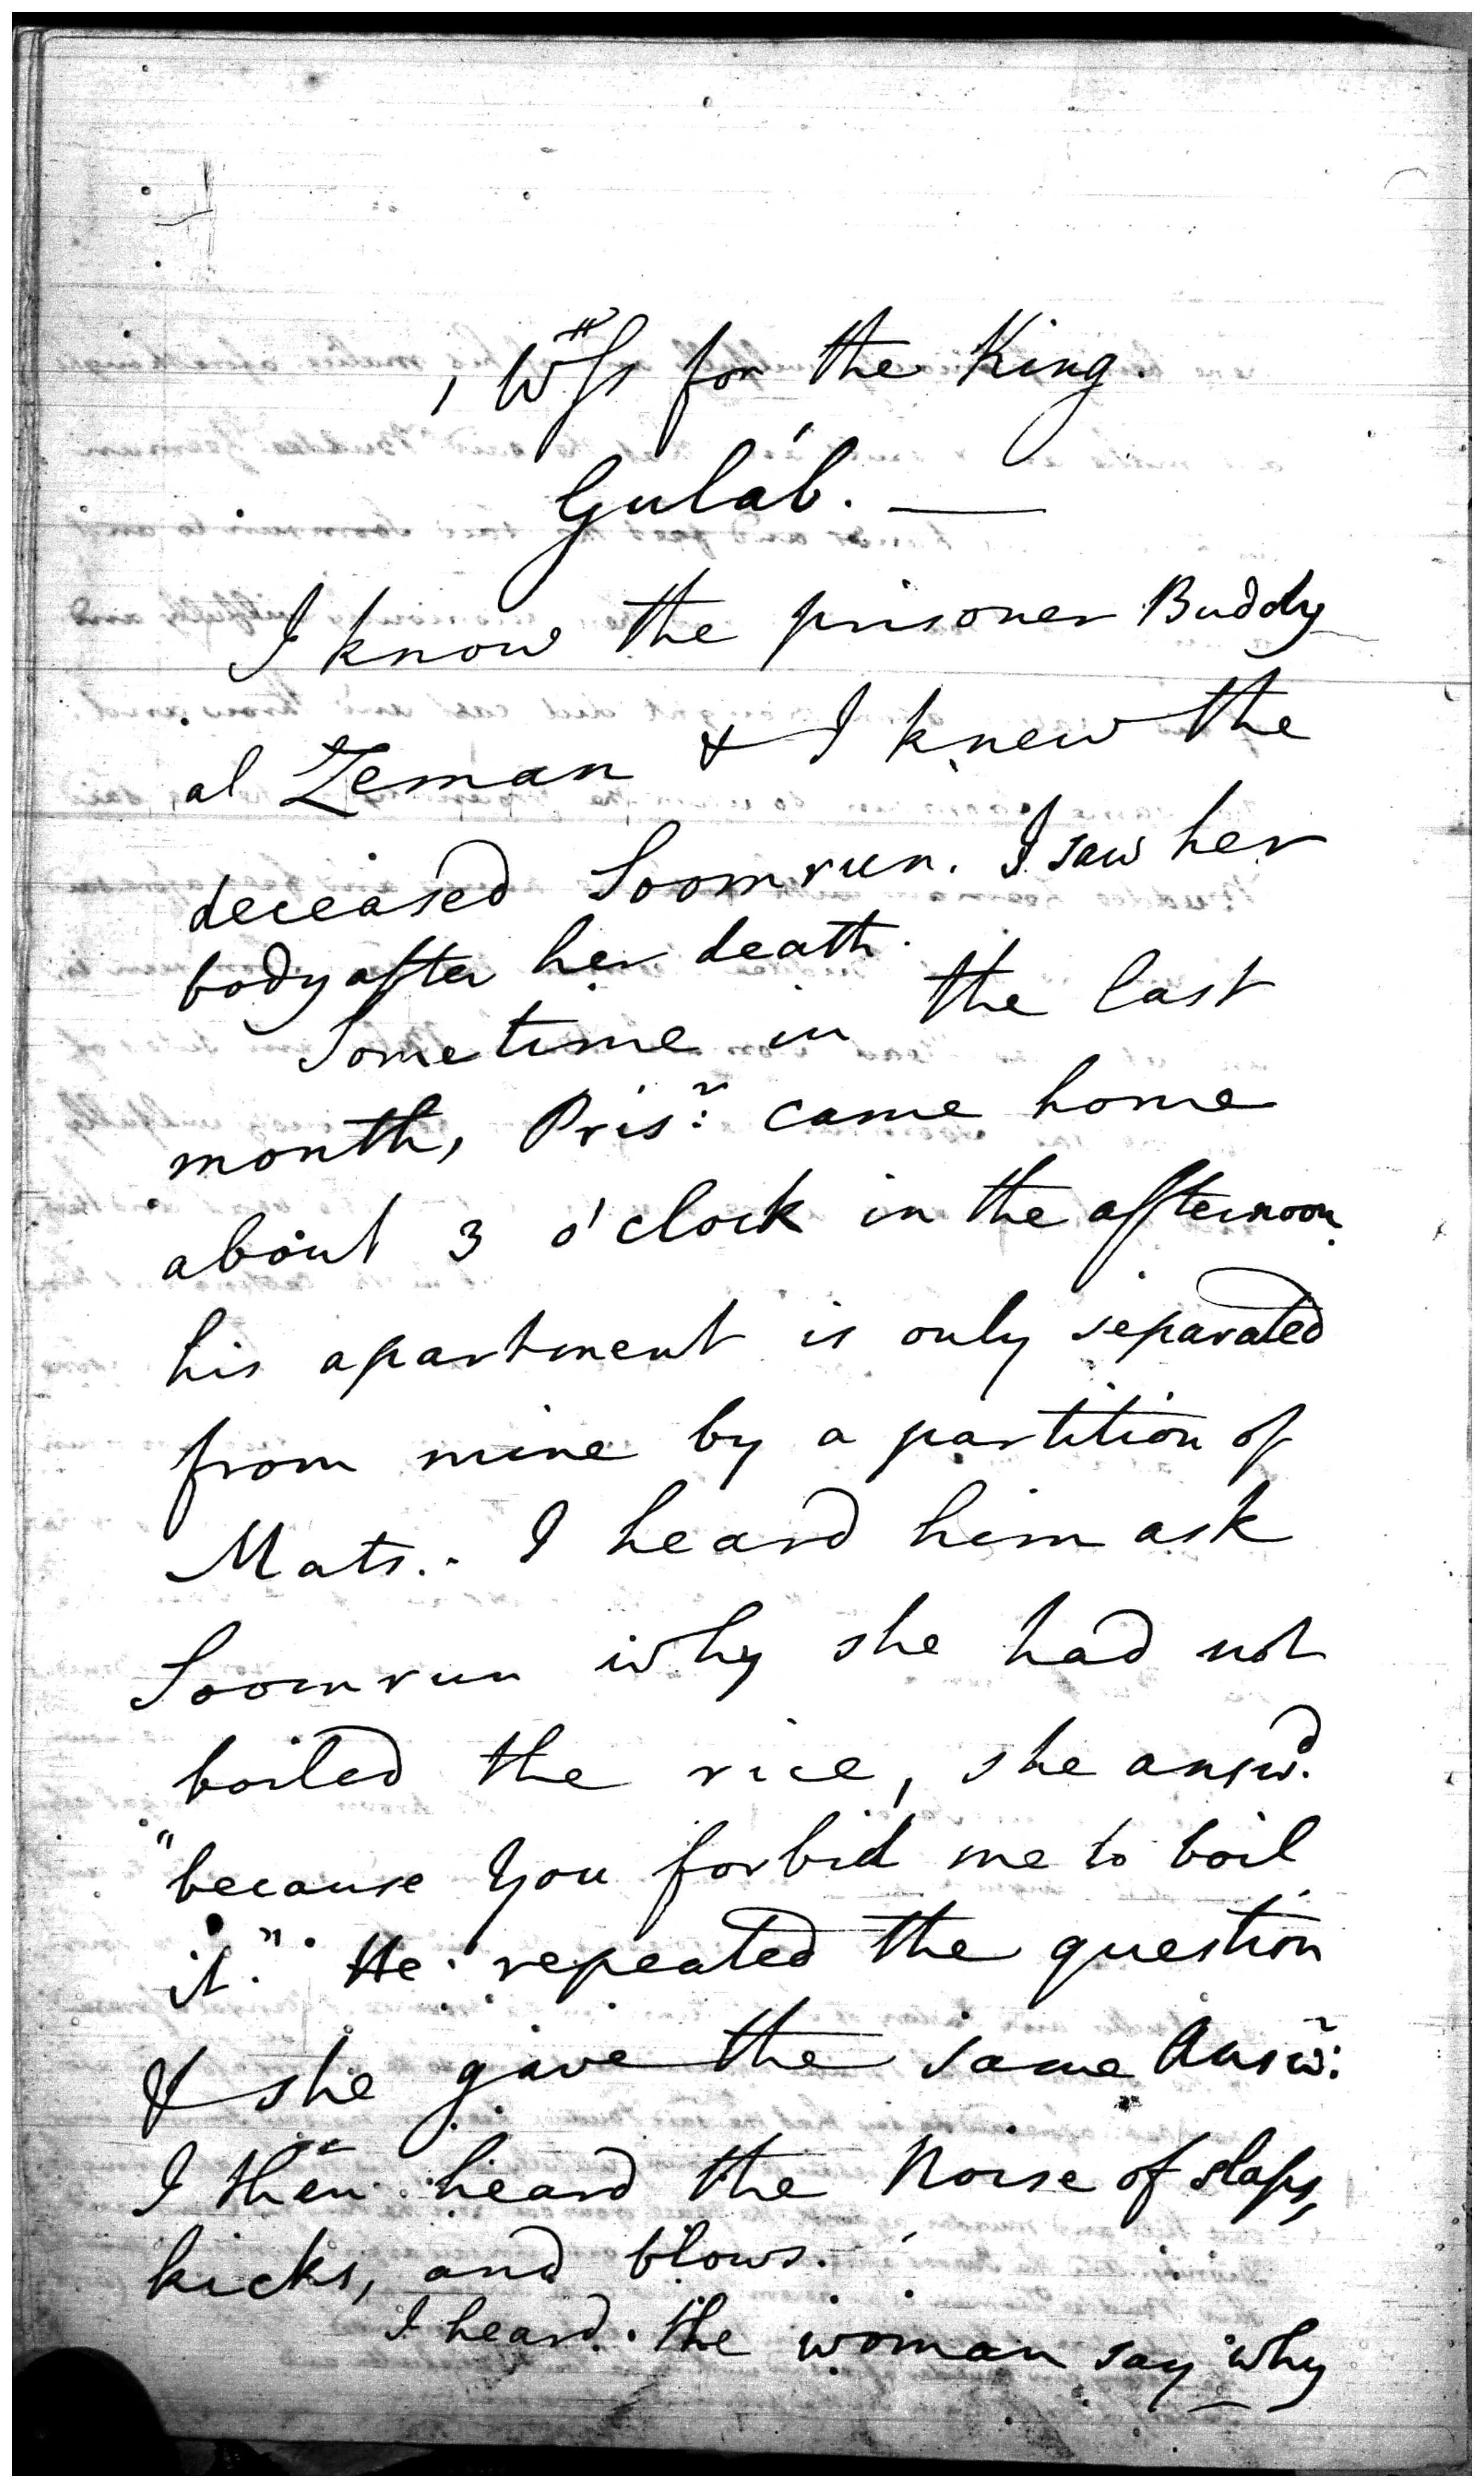 1 Wss for the King.
Guláb. —
I know the prisoner Buddy
al Zeman & I knew the
deceased Soomrun. I saw her
body after her death.
Sometime in the last
month, Prisr: came home
about 3 o'clock in the afternoon.
his apartment is only separated
from mine by a partition of
Mats. - I heard him ask
Soomrun why she had not
boiled the rice, she answd.
"because you forbid me to boil
it." He repeated the question
& she gave the same Answr:
I then heard the noise of slaps,
kicks, and blows.
I heard the woman say why